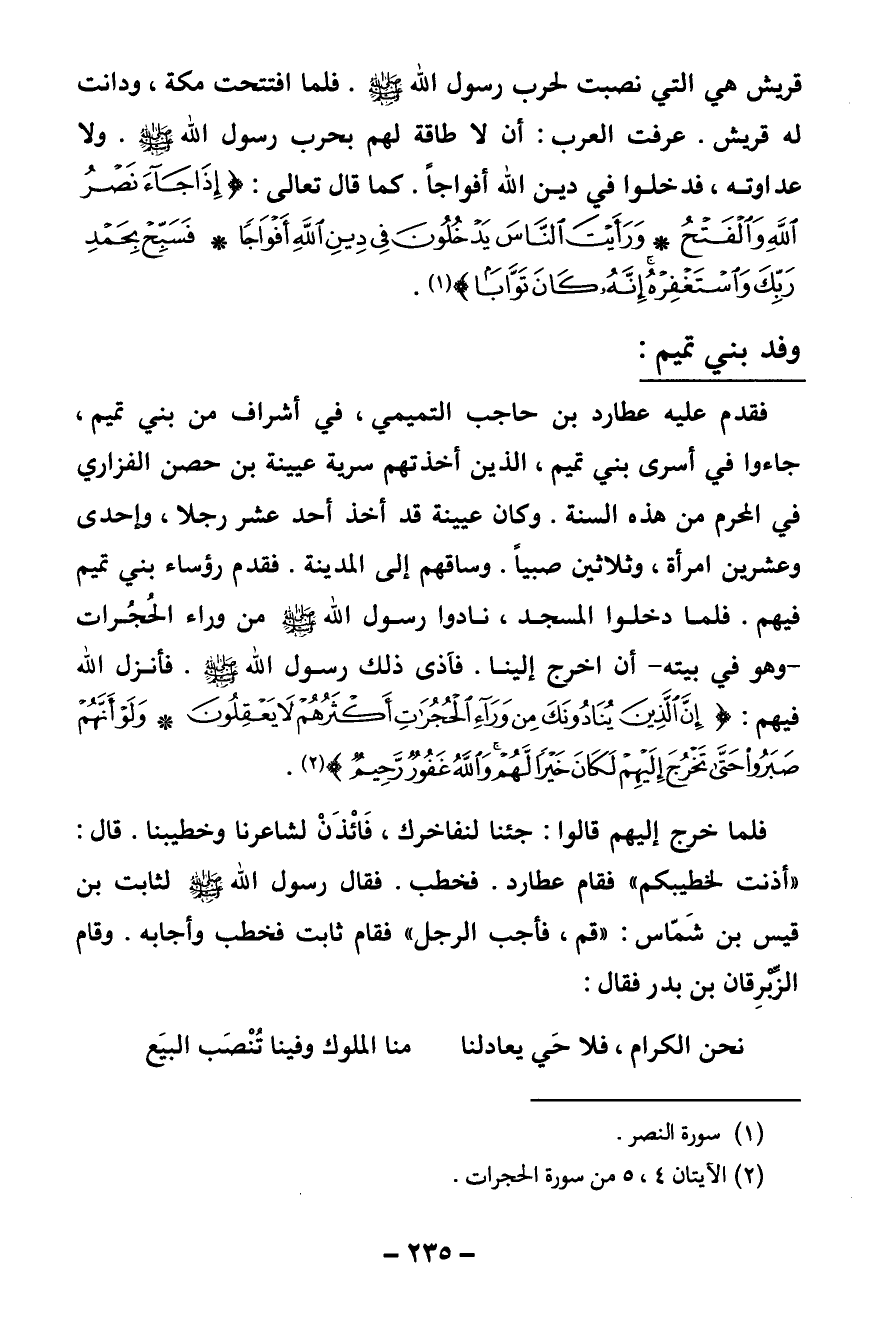 قريش هي التي نصبت لحرب رسول الله ﷺ . فلما افتتحت مكة ، ودانت
له قريش . عرفت العرب : أن لا طاقة لهم بحرب رسول الله ﷺ . ولا
عداوتـه ، فدخلـوا في ديـن الله أفواجاً . كما قال تعالى : ﴿ إِذَا جَآءَ نَصْـرُ
ٱللَّهِ وَٱلْفَـتْحُ * وَرَأَيْتَ ٱلنَّاسَ يَدْخُلُونَ فِى دِينِ ٱللَّهِ أَفْوَاجًا * فَسَبِّحْ بِحَمْدِ
رَبِّكَ وَٱسْتَغْفِرْهُۚ إِنَّهُۥ كَانَ تَوَّابًۢا ﴾(١) .
وفد بني تميم :
فقدم عليه عطارد بن حاجب التميمي ، في أشراف من بني تميم ،
جاءوا في أسرى بني تميم ، الذين أخذتهم سرية عيينة بن حصن الفزاري
في المحرم من هذه السنة . وكان عيينة قد أخذ أحد عشر رجلا ، وإحدى
وعشرين امرأة ، وثلاثين صبياً . وساقهم إلى المدينة . فقدم رؤساء بني تميم
فيهم . فلمـا دخلـوا المسجـد ، نـادوا رسـول الله ﷺ من وراء الحُجُرات
-وهو في بيته- أن اخرج إلينـا . فآذى ذلك رسـول الله ﷺ . فأنـزل الله
فيهم : ﴿ إِنَّ ٱلَّذِينَ يُنَادُونَكَ مِن وَرَآءِ ٱلْحُجُرَٰتِ أَكْثَرُهُمْ لَا يَعْقِلُونَ * وَلَوْ أَنَّهُمْ
صَبَرُوا۟ حَتَّىٰ تَخْرُجَ إِلَيْهِمْ لَكَانَ خَيْرًا لَّهُمْۚ وَٱللَّهُ غَفُورٌ رَّحِيمٌ ﴾(٢) .
فلما خرج إليهم قالوا : جئنا لنفاخرك ، فَائْذَنْ لشاعرنا وخطيبنا . قال :
«أذنت لخطيبكم» فقام عطارد . فخطب . فقال رسول الله ﷺ لثابت بن
قيس بن شَمّاس : «قم ، فأجب الرجل» فقام ثابت فخطب وأجابه . وقام
الزِّبْرِقان بن بدر فقال :
نحن الكرام ، فلا حَي يعادلنا منا الملوك وفينا تُنْصَب البيَع
(١) سورة النصر .
(٢) الآيتان ٤ ، ٥ من سورة الحجرات .
- ٢٣٥ -